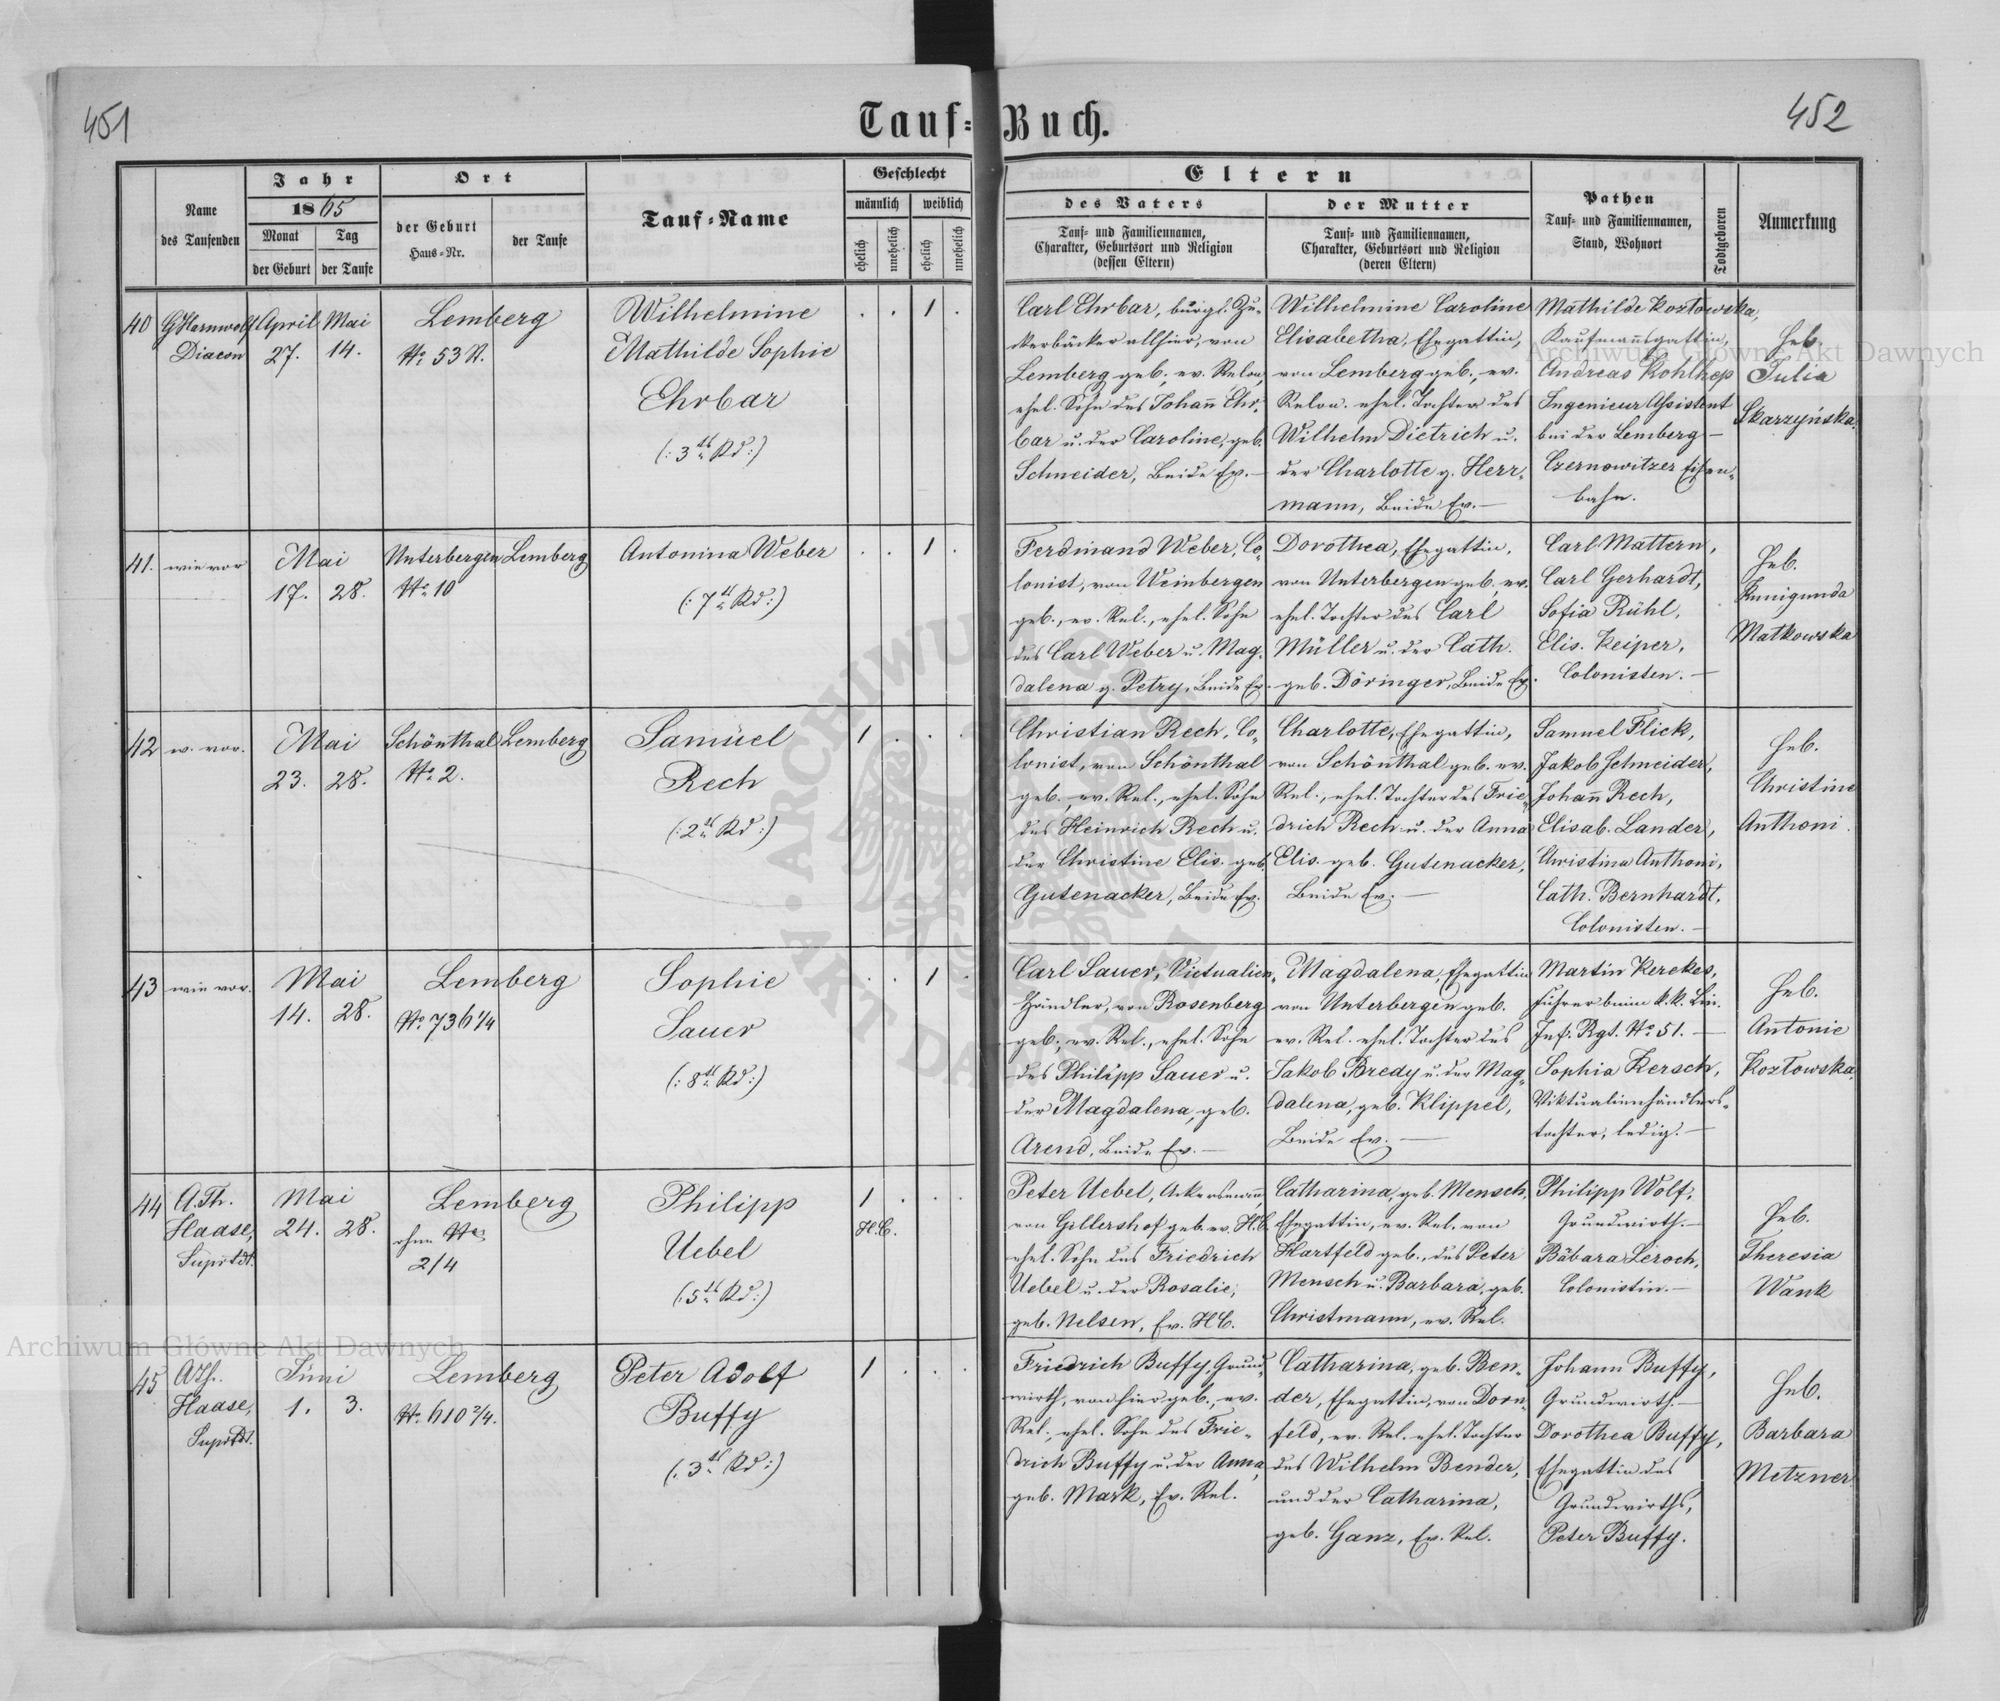 451
452
Tauf-Buch.
Name des Taufenden
Jahr
1865
Monat der Geburt
Tag der Taufe
Ort
der Geburt Haus-Nr.
der Taufe
Tauf-Name
Geschlecht
männlich
weiblich
ehelich
unehelich
ehelich
unehelich
Eltern
des Vaters
Tauf- und Familiennamen,
Charakter, Geburtsort und Religion
(dessen Eltern)
der Mutter
Tauf- und Familiennamen,
Charakter, Geburtsort und Religion
(deren Eltern)
Pathen
Tauf- und Familiennamen,
Stand, Wohnort
Todtgeboren
Anmerkung
40
Diacon
April
27.
Mai
14.
Lemberg
No 53
Wilhelmine
Mathilde Sophie
Ehrbar
(: 3tes Kd :)
1
Carl Ehrbar, bürgl. Zu-
kerbäcker allhier, von
Lemberg geb., ev. Relon,
ehel. Sohn des Johann Ehr-
bar u. der Caroline, geb.
Schneider, Beide Ev. —
Wilhelmine Caroline
Elisabetha, Ehegattin,
von Lemberg geb., ev.
Relon. ehel. Tochter des
Wilhelm Dietrich u.
der Charlotte g. Herr-
mann, Beide Ev. —
Mathilde Kozłowska,
Kaufmannsgattin,
Andreas Kohlhep
Ingenieur Assistent
bei der Lemberg —
Czernowitzer Eisen-
bahn.
Heb.
Julia
Skarzyńska.
41.
wie vor
Mai
17. 28.
Unterbergen
No 10
Lemberg
Antonina Weber
(: 7tes Kd :)
1
Ferdinand Weber, Co-
lonist, von Weinbergen
geb., ev. Rel., ehel. Sohn
des Carl Weber u. Mag-
dalena g. Petry, Beide Ev.
Dorothea, Ehegattin,
von Unterbergen geb., ev.
ehel. Tochter des Carl
Müller u. der Cath.
geb. Döringer, Beide Ev.
Carl Mattern,
Carl Gerhardt,
Sofia Rühl,
Elis. Keiper,
Colonisten. —
Heb.
Kunigunda
Matkowska
42
w. vor.
Mai
23. 28.
Schönthal
No 2.
Lemberg
Samuel
Rech
(: 2tes Kd :)
1
Christian Rech, Co-
lonist, von Schönthal
geb. ev. Rel., ehel. Sohn
des Heinrich Rech u.
der Christine Elis. geb.
Gutenacker, Beide Ev.
Charlotte, Ehegattin,
von Schönthal geb. ev.
Rel., ehel. Tochter des Frie-
drich Rech u. der Anna
Elis. geb. Gutenacker,
Beide Ev. —
Samuel Flick,
Jakob Schneider,
Johann Rech,
Elisab. Lander,
Christina Anthoni,
Cath. Bernhardt,
Colonisten. —
Heb.
Christine
Anthoni.
43
wie vor.
Mai
14. 28.
Lemberg
No 736 1/4
Sophie
Sauer
(: 8tes Kd :)
1
Carl Sauer, Victualien-
händler, von Rosenberg
geb., ev. Rel., ehel. Sohn
des Philipp Sauer u.
der Magdalena, geb.
Arend, Beide Ev. —
Magdalena, Ehegattin
von Unterbergen geb.
ev. Rel. ehel. Tochter des
Jakob Bredy u. der Mag-
dalena, geb. Klippel,
Beide Ev. —
Martin Kerekes,
Führer beim k.k. Lin.
Inf. Rgt. No 51. —
Sophia Kersch,
Viktualienhändlers-
tochter, ledig. —
Heb.
Antonie
Kozłowska.
44
A. Th.
Haase,
Suprtdt.
Mai
24. 28.
Lemberg
ohne No
2/4
Philipp
Uebel
(: 5tes Kd :)
1
H.C.
Peter Uebel, Ackersmann,
von Gellershof geb. ev. H.C.
ehel. Sohn des Friedrich
Uebel u. der Rosalie,
geb. Nelsen, Ev. HC.
Catharina, geb. Mensch,
Ehegattin, ev. Rel. von
Hartfeld geb., des Peter
Mensch u. Barbara, geb.
Christmann, ev. Rel.
Philipp Wolf,
Grundwirth. —
Bäbara Leroch,
Colonistin. —
Heb.
Theresia
Wank
45
ATh.
Haase,
Suprtdt.
Juni
1. 3.
Lemberg
No 610 2/4.
Peter Adolf
Buffy
(: 3tes Kd :)
1
Friedrich Buffy, Grund-
wirth, von hier geb., ev.
Rel., ehel. Sohn des Frie-
drich Buffy u. der Anna,
geb. Mark, Ev. Rel.
Catharina, geb. Ben-
der, Ehegattin, von Dorn-
feld, ev. Rel. ehel. Tochter
des Wilhelm Bender,
und der Catharina,
geb. Ganz, Ev. Rel.
Johann Buffy,
Grundwirth. —
Dorothea Buffy,
Ehegattin des
Grundwirths,
Peter Buffy.
Heb.
Barbara
Metzner
Archiwum Główne Akt Dawnych
Archiwum Główne Akt Dawnych